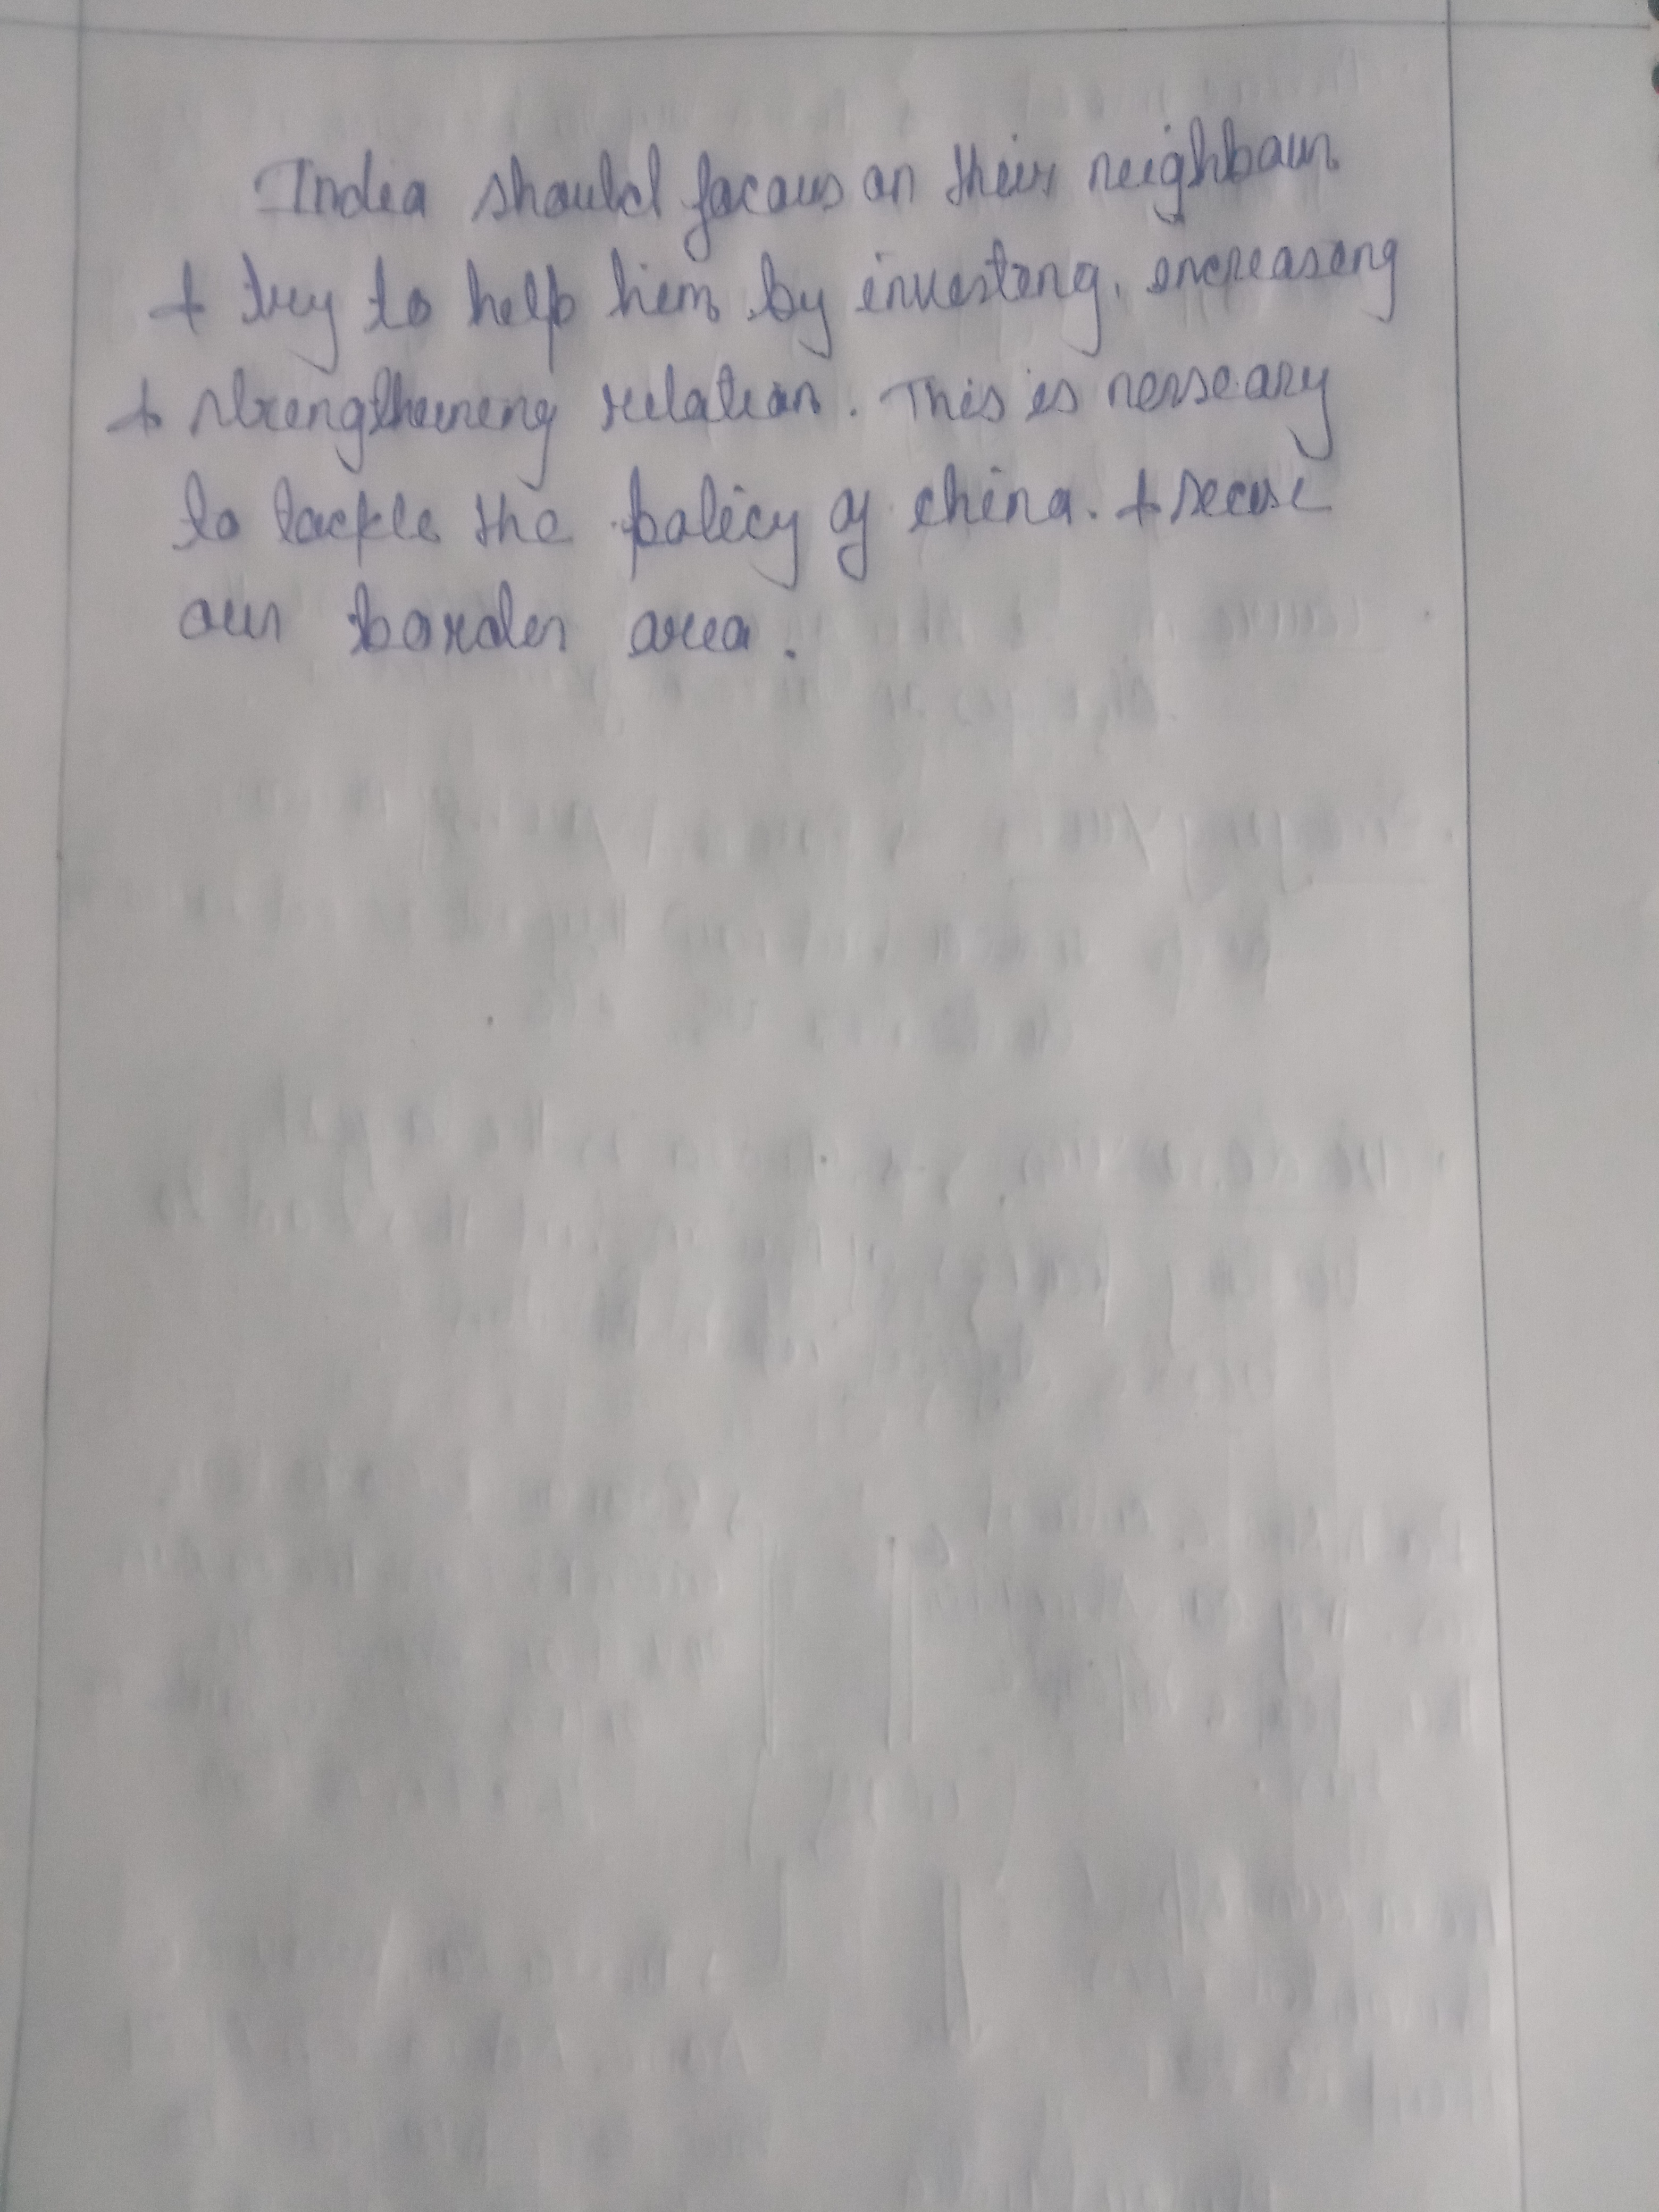 India should focous on their neighbour
& try to help him by investing, increasing
& strengthening relation. This is nesseary
to tackle the policy of china. & secure
our border area.